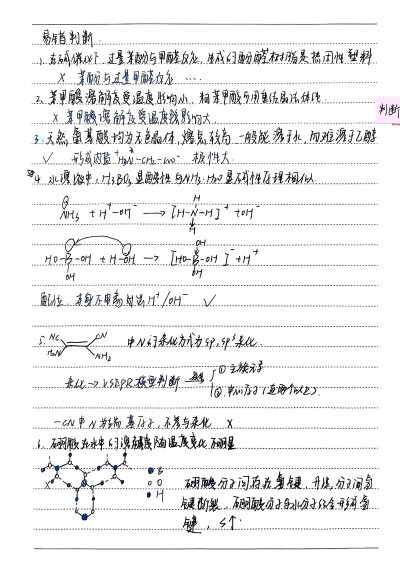 易错判断.
1. 在碱催化下,过量苯酚与甲醛反应,生成的酚醛树脂是热固性塑料
× 苯酚与过量甲醛反应 ....
2. 苯甲酸溶解度受温度影响小,粗苯甲酸可用重结晶法纯化
× 苯甲酸溶解度受温度影响大
判断
3. 天然氨基酸均为无色晶体,熔点较高,一般能溶于水,而难溶于乙醚
√ 形成内盐 +H₃N-CH₂-COO⁻ 极性大
4. 水溶液中,H₃BO₃显酸性与NH₃·H₂O显碱性原理相似
NH₃ + H⁺-OH⁻ → [H-N-H]⁺ + OH⁻
H
H
OH
HO-B-OH + H-OH → [HO-B-OH]⁻ + H⁺
OH
OH
配位, 本身不电离出 H⁺/OH⁻ √
5. NC CN 中N的杂化方式为sp, sp³杂化.
H₂N NH₂
杂化 → VSEPR模型判断
① 主族元素
② 中心原子(连两个以上)
-CN中N为端基原子,不参与杂化 ×
6. 硼酸在水中的溶解度随温度变化不明显
× B
O
H
硼酸分子间存在氢键,升温,分子间氢
键断裂,硼酸分子与水分子结合形成氢
键, S↑